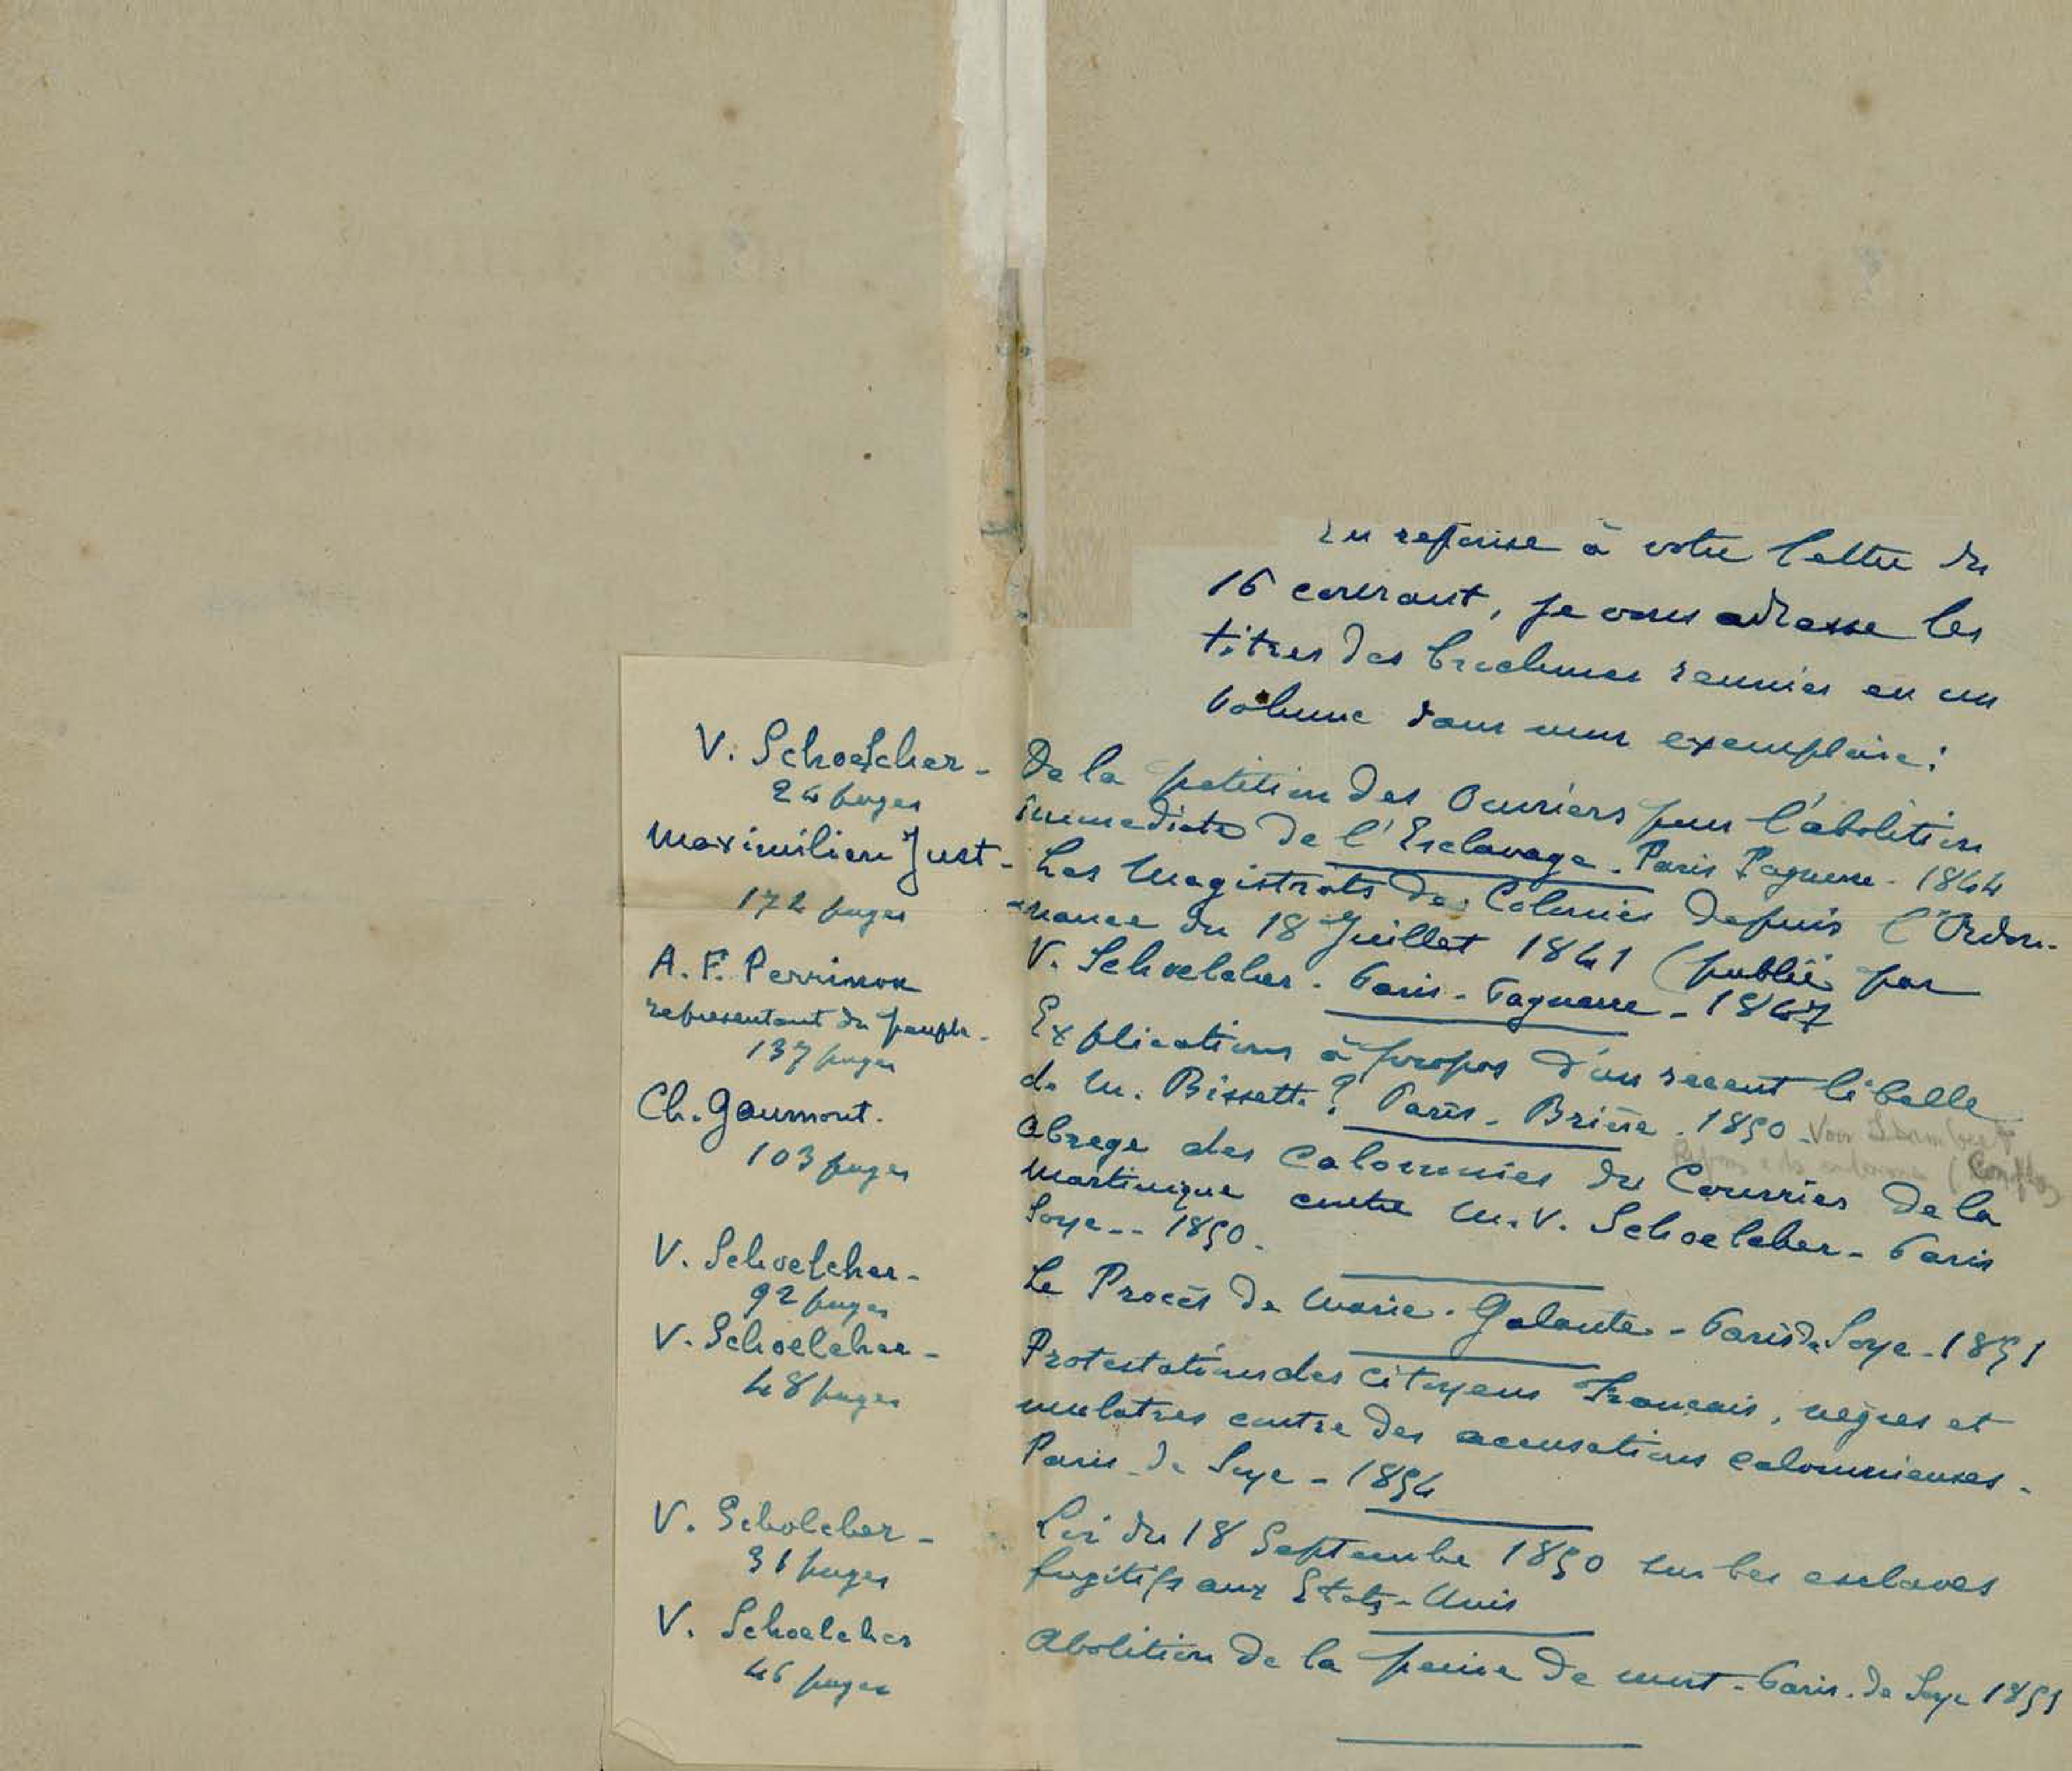 En reponse à votre lettre du
16 courant, je vous adresse les
titres des brochures reunies en un
volume dans mon exemplaire :
V. Schoelcher - De la petition des Ouvriers pour l'abolition
24 pages
immediate de l'Esclavage. Paris Pagnerre - 1844
Maximilien Just - Les Magistrats des Colonies depuis l'Ordon-
172 pages
-nance du 18 Juillet 1841 (publié par
V. Schoelcher. Paris - Pagnerre - 1847
A. F. Perrinon
représentant du peuple -
137 pages
Explications à propos d'un récent libelle
de M. Bissette? Paris - Brière. 1850 - Voir
Ch. Gaumont.
103 pages
Abrege des Calomnies du Courrier de la
Martinique contre M. V. Schoelcher - Paris
Soye -- 1850.
V. Schoelcher -
92 pages
Le Procès de Marie-Galante - Paris de Soye - 1851
V. Schoelcher -
48 pages
Protestation des citoyens Français, nègres et
mulatres contre des accusations calomnieuses -
Paris de Soye - 1854
V. Scholcher -
31 pages
Loi du 18 Septembre 1850 sur les esclaves
fugitifs aux Etats-Unis
V. Schoelcher
46 pages
Abolition de la peine de mort - Paris. de Soye 1851